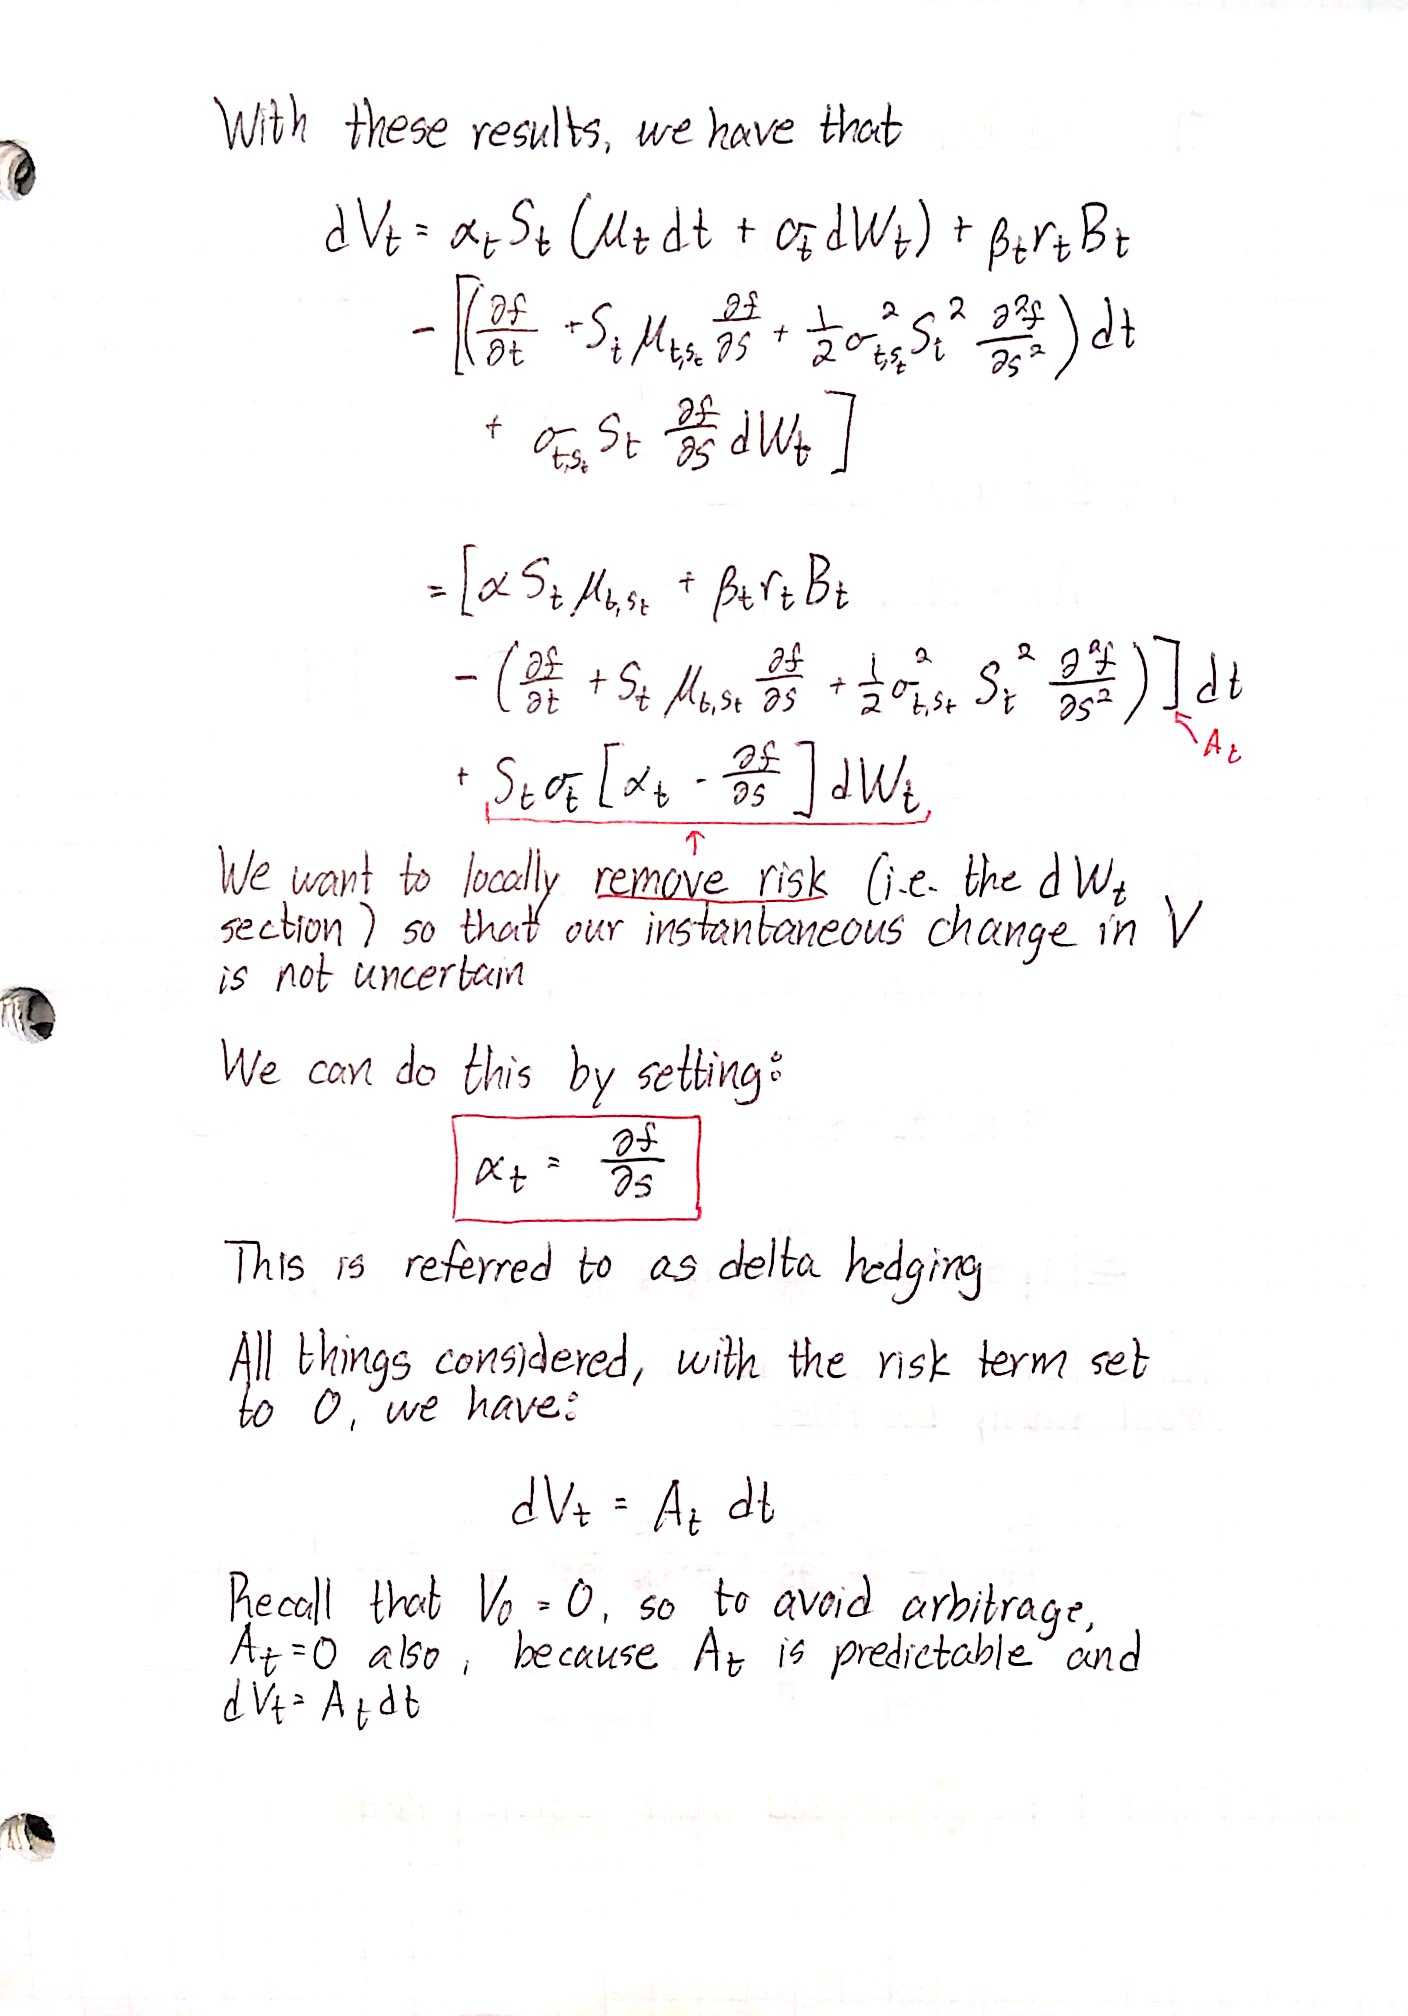 With these results, we have that
dVₜ = αₜSₜ(μₜdt + σₜdWₜ) + βₜrₜBₜ
- [(∂f/∂t + Sₜμ_{t,Sₜ} ∂f/∂s + 1/2 σ²_{t,Sₜ} Sₜ² ∂²f/∂s²) dt
+ σ_{t,Sₜ} Sₜ ∂f/∂s dWₜ]
= [αSₜμ_{t,Sₜ} + βₜrₜBₜ
- (∂f/∂t + Sₜμ_{t,Sₜ} ∂f/∂s + 1/2 σ²_{t,Sₜ} Sₜ² ∂²f/∂s²)] dt
Aₜ
+ Sₜσₜ[αₜ - ∂f/∂s] dWₜ
We want to locally remove risk (i.e. the dWₜ
section) so that our instantaneous change in V
is not uncertain
We can do this by setting:
αₜ = ∂f/∂s
This is referred to as delta hedging
All things considered, with the risk term set
to 0, we have:
dVₜ = Aₜ dt
Recall that V₀ = 0, so to avoid arbitrage,
Aₜ = 0 also, because Aₜ is predictable and
dVₜ = Aₜdt